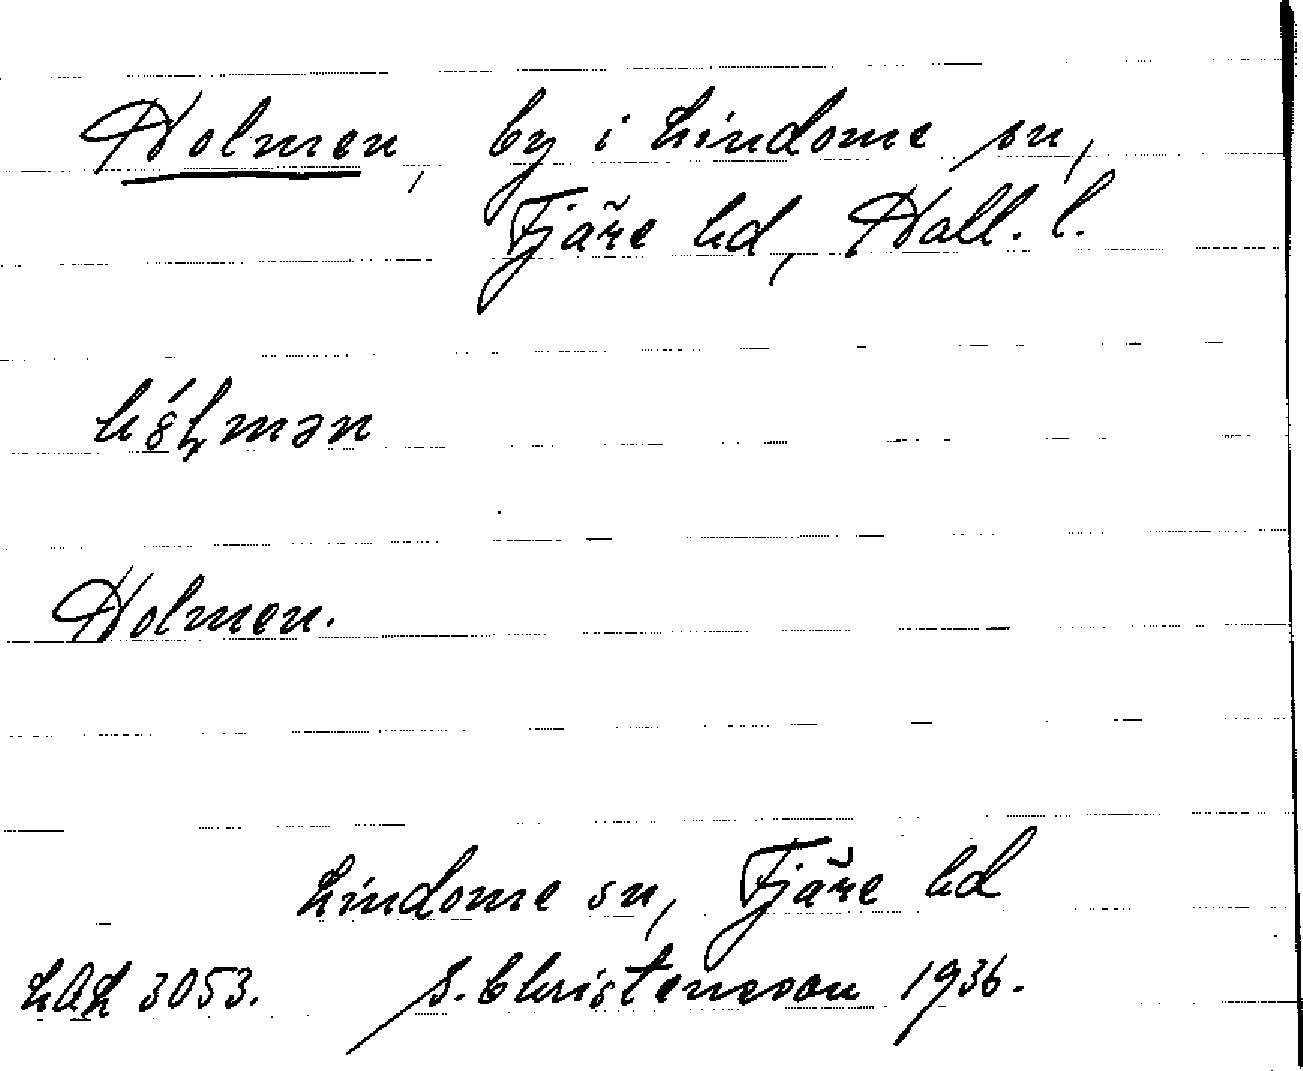 Holmen, by i Lindome sn,
Fjäre hd, Hall. l.
Holmen.
Lindome sn, Fjäre hd
LAL 3053. S. Christensson 1936.